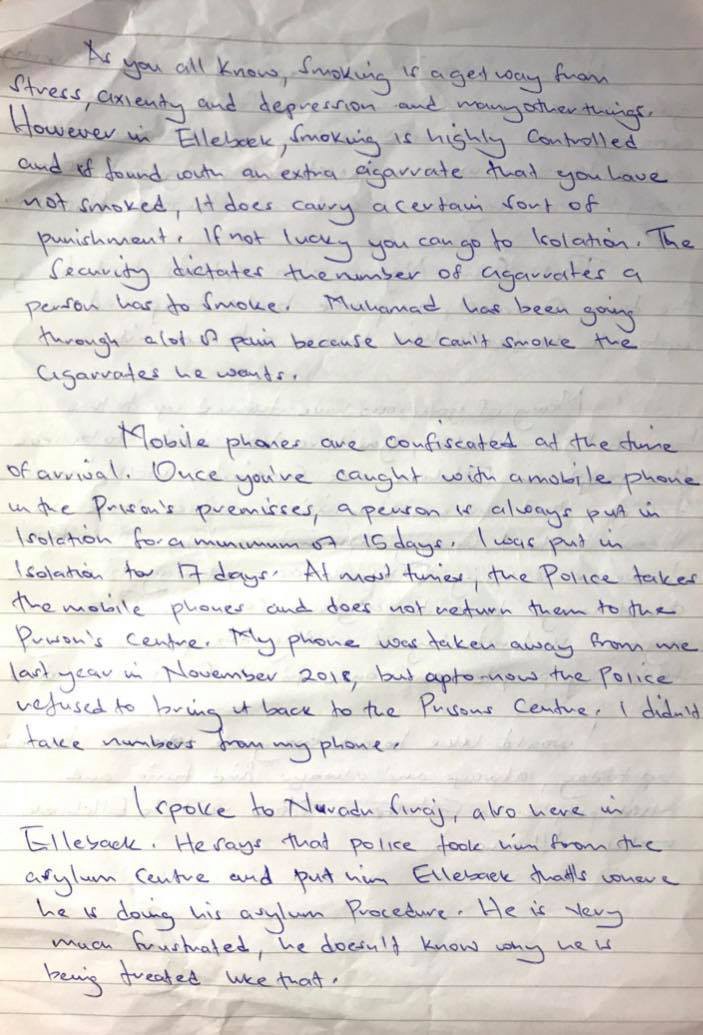 As you all know, Smoking is a get way from
Stress, axienty and depression and many other things.
However in Ellebaek, smoking is highly Controlled
and if found with an extra cigarrate that you have
not smoked, it does carry a certain sort of
punishment. If not lucky you can go to Isolation. The
Security dictates the number of cigarrates a
person has to smoke. Muhamad has been going
through a lot of pain because he can't smoke the
Cigarrates he wants.
Mobile phones are confiscated at the time
of arrival. Once you've caught with a mobile phone
in the Prison's premisses, a person is always put in
Isolation for a minimum of 15 days. I was put in
Isolation for 17 days. At most times, the Police takes
the mobile phones and does not return them to the
Prison's Centre. My phone was taken away from me
last year in November 2018, but apto-now the Police
refused to bring it back to the Prisons Centre. I didn't
take numbers from my phone.
I spoke to Nuradn Siraj, also here in
Ellebaek. He says that police took him from the
asylum Centre and put him Ellebaek that's where
he is doing his asylum Procedure. He is very
much frustrated, he doesn't know why he is
being treated like that.